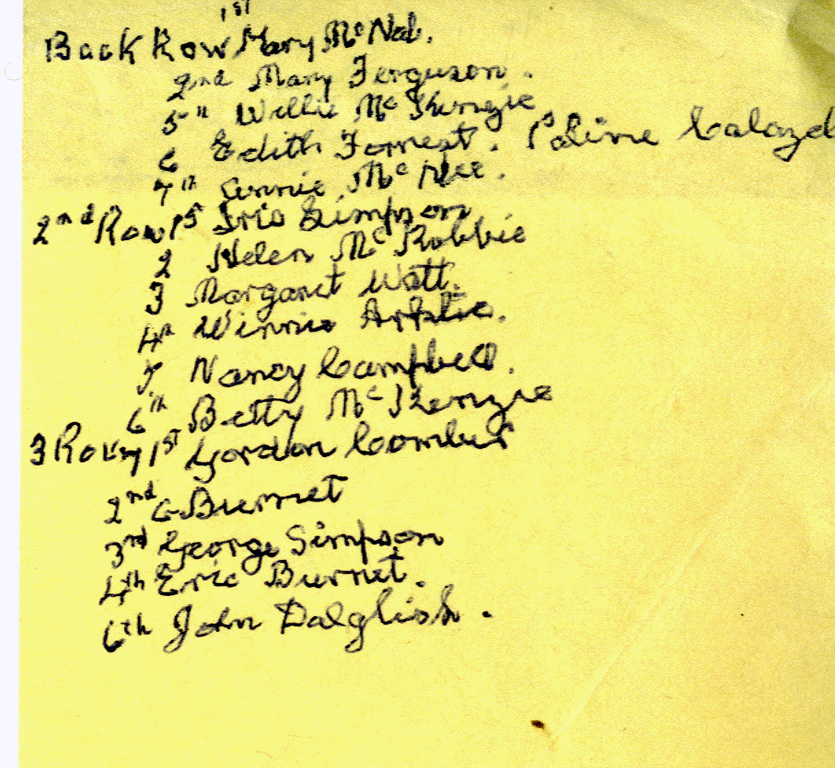 Back Row 1st Mary McNab.
2nd Mary Ferguson.
5" Willie McKenzie
6 Edith Forrest.
7th Annie McNee.
2nd Row 1st Iris Simpson
2 Helen McRobbie
3 Margaret Watt.
4th Winnie
5 Nancy Campbell.
6th Betty McKenzie
3 Row 1st Gordon Comber
2nd G Burnet
3rd George Simpson
4th Eric Burnet.
6th John Dalglish.